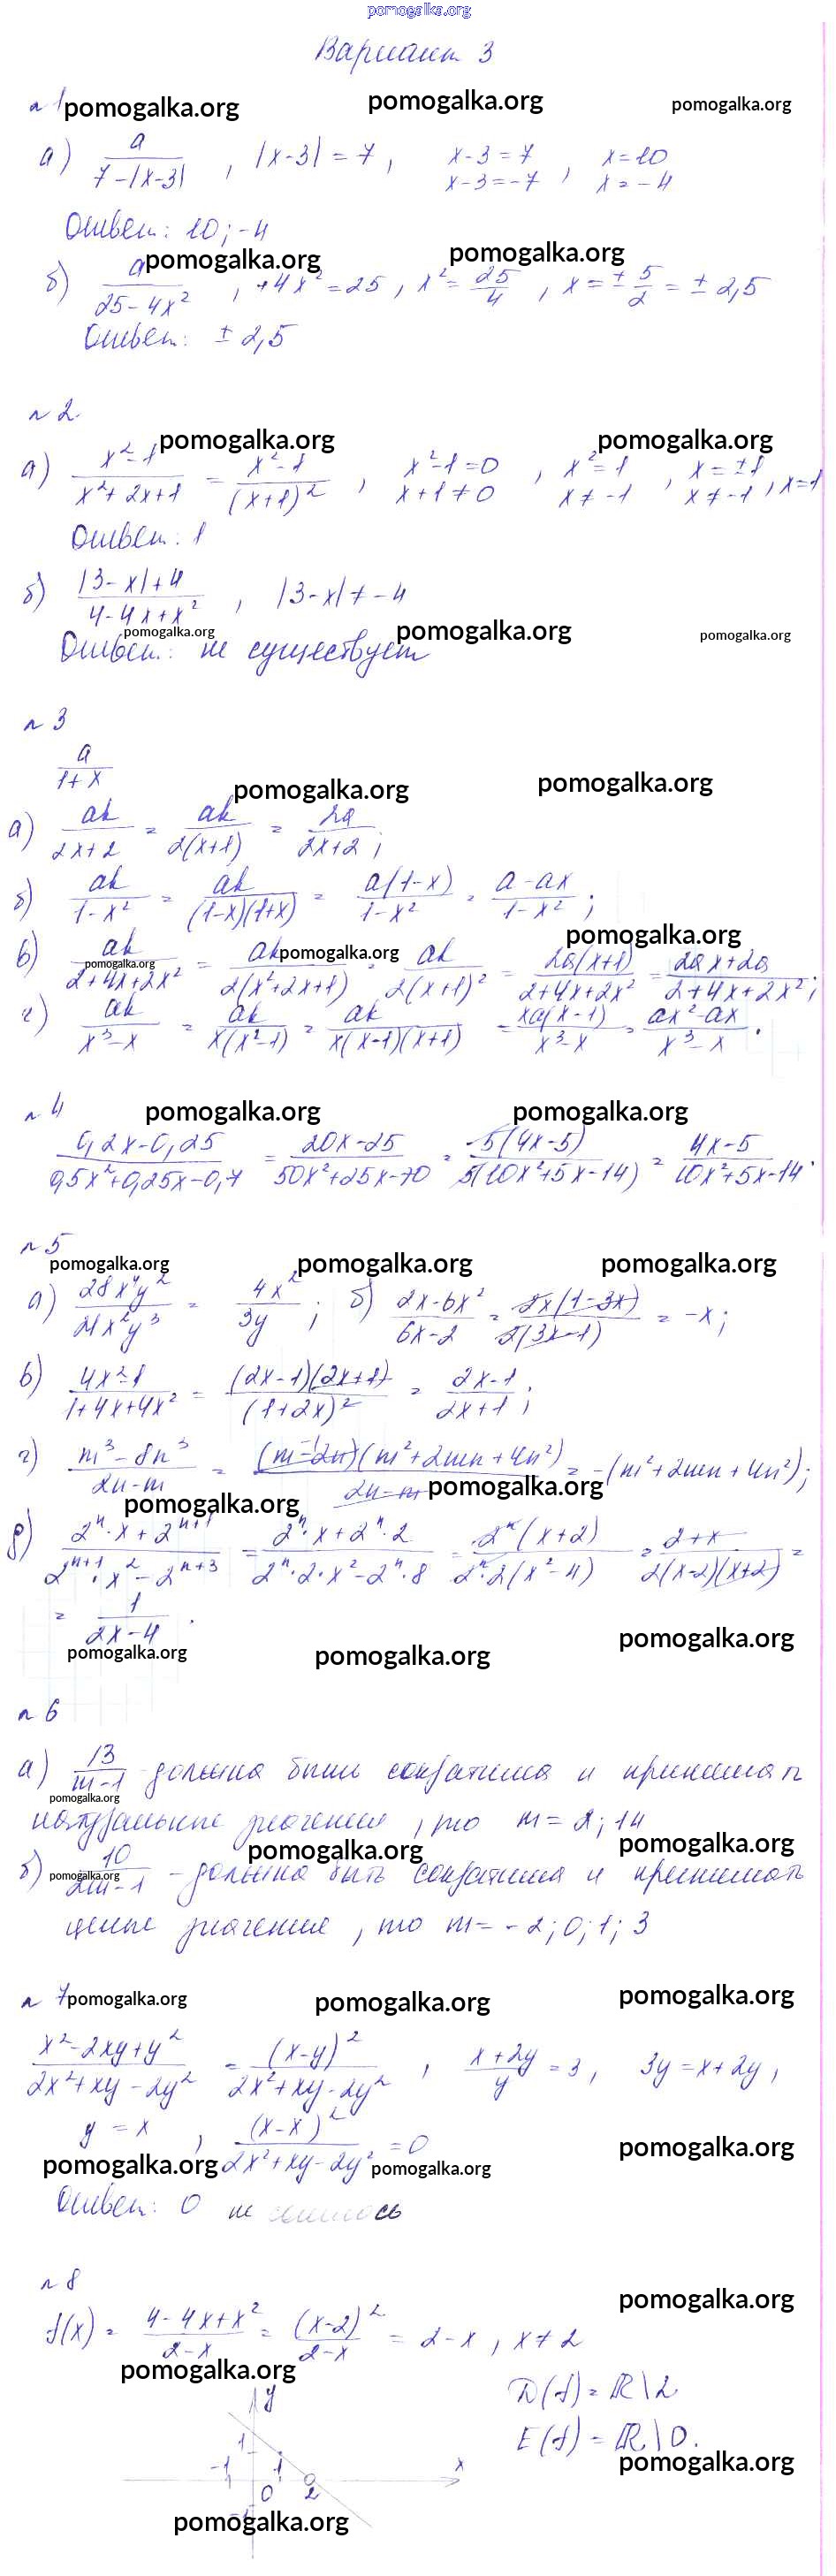 pomogalka.org
Вариант 3
№1 pomogalka.org pomogalka.org pomogalka.org
а) a/(7-|x-3|), |x-3| = 7, x-3 = 7 x-3 = -7, x = 10 x = -4
Ответ: 10; -4
pomogalka.org pomogalka.org
б) a/(25-4x²), +4x² = 25, x² = 25/4, x = ± 5/2 = ± 2,5
Ответ: ± 2,5
№2.
pomogalka.org pomogalka.org
а) (x²-1)/(x²+2x+1) = (x²-1)/(x+1)², x²-1=0 x+1≠0, x²=1 x≠-1, x=±1 x≠-1, x=1
Ответ: 1
б) (|3-x|+4)/(4-4x+x²), |3-x| ≠ -4
pomogalka.org pomogalka.org pomogalka.org
Ответ: не существует
№3
a/(1+x)
pomogalka.org pomogalka.org
а) ak/(2x+2) = ak/(2(x+1)) = 2a/(2x+2);
б) ak/(1-x²) = ak/((1-x)(1+x)) = a(1-x)/(1-x²) = (a-ax)/(1-x²);
pomogalka.org
pomogalka.org pomogalka.org
в) ak/(2+4x+2x²) = ak/(2(x²+2x+1)) = ak/(2(x+1)²) = 2a(x+1)/(2+4x+2x²) = (2ax+2a)/(2+4x+2x²);
г) ak/(x³-x) = ak/(x(x²-1)) = ak/(x(x-1)(x+1)) = xa(x-1)/(x³-x) = (ax²-ax)/(x³-x).
№4 pomogalka.org pomogalka.org
(0,2x-0,25)/(0,5x²+0,25x-0,7) = (20x-25)/(50x²+25x-70) = 5(4x-5)/(5(10x²+5x-14)) = (4x-5)/(10x²+5x-14).
№5
pomogalka.org pomogalka.org pomogalka.org
а) 28x⁴y²/(21x²y³) = 4x²/(3y); б) (2x-6x²)/(6x-2) = 2x(1-3x)/(2(3x-1)) = -x;
в) (4x²-1)/(1+4x+4x²) = (2x-1)(2x+1)/(1+2x)² = (2x-1)/(2x+1);
г) (m³-8n³)/(2n-m) = (m-2n)(m²+2mn+4n²)/(2n-m) = -(m²+2mn+4n²);
pomogalka.org pomogalka.org
д) (2ⁿ·x+2ⁿ⁺¹)/(2ⁿ⁺¹·x²-2ⁿ⁺³) = (2ⁿ·x+2ⁿ·2)/(2ⁿ·2·x²-2ⁿ·8) = 2ⁿ(x+2)/(2ⁿ·2(x²-4)) = (2+x)/(2(x-2)(x+2)) =
= 1/(2x-4).
pomogalka.org pomogalka.org pomogalka.org
№6
а) 13/(m-1) - должна быть сократима и принимат
pomogalka.org
натуральные значения, то m = 2; 14
pomogalka.org pomogalka.org
б) 10/(2m-1) - должна быть сократима и принимат
pomogalka.org
целые значение, то m = -2; 0; 1; 3
№7 pomogalka.org pomogalka.org pomogalka.org
(x²-2xy+y²)/(2x²+xy-2y²) = (x-y)²/(2x²+xy-2y²), (x+2y)/y = 3, 3y = x+2y,
y = x, (x-x)²/(2x²+xy-2y²) = 0
pomogalka.org pomogalka.org pomogalka.org
Ответ: 0 не
№8
pomogalka.org
f(x) = (4-4x+x²)/(2-x) = (x-2)²/(2-x) = 2-x, x≠2
pomogalka.org
D(f) = ℝ\2
E(f) = ℝ\0.
pomogalka.org
y
1
-1 1 x
0 2
-1
pomogalka.org